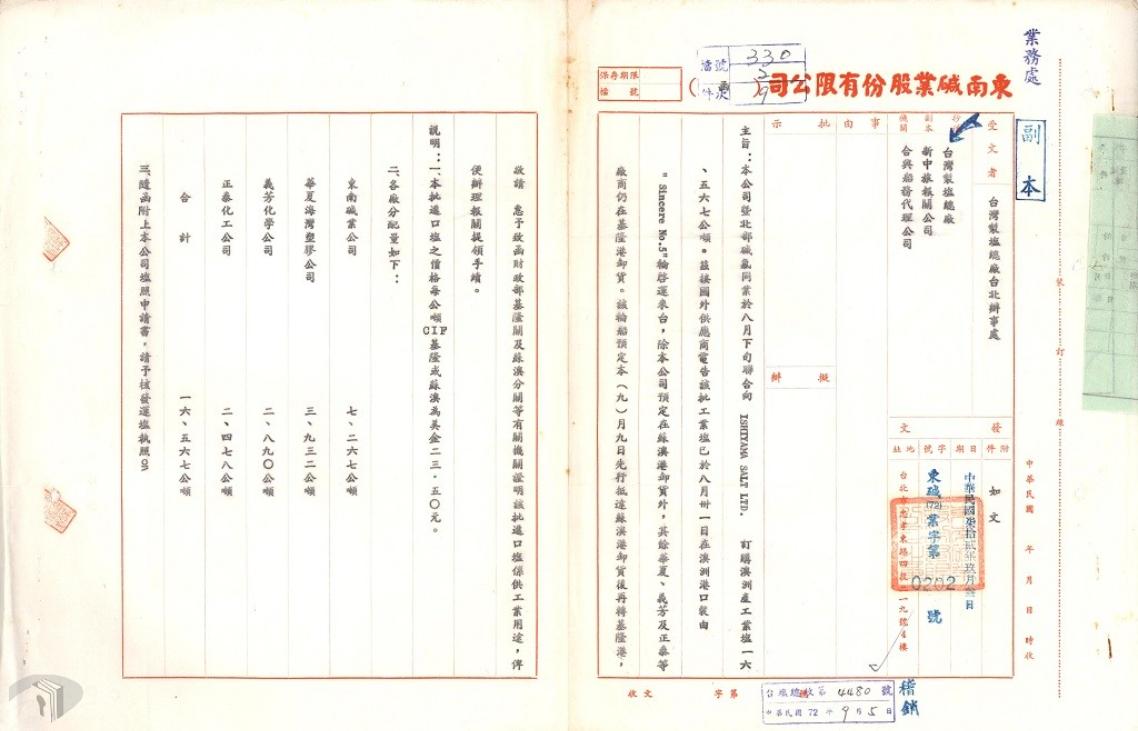 業務處
副本
東南碱業股份有限公司( )
保存期限
檔號
檔號 330
件次 9
受文者 台灣製塩總廠台北辦事處
副本
機關
台灣製塩總廠
新中旅報關公司
合興船務代理公司
事由
批示
擬辦
發文
附件 如文
日期 中華民國柒拾貳年玖月叁日
字號 東碱(72)業字第 0202 號
地址 台北市忠孝東路四段二一九號4樓
主旨：本公司暨北部碱氯同業於八月下旬聯合向 ISHIYAMA SALT LTD. 訂購澳洲產工業塩一六
、五六七公噸。茲接國外供應商電告該批工業塩已於八月卅一日在澳洲港口裝由
" Sincere No.5"輪啓運來台，除本公司預定在蘇澳港卸貨外，其餘華夏、義芳及正泰等
廠商仍在基隆港卸貨。該輪船預定本(九)月九日先行抵達蘇澳港卸貨後再轉基隆港，
敬請 惠予致函財政部基隆關及蘇澳分關等有關機關證明該批進口塩係供工業用途，俾
便辦理報關提領手續。
說明：一、本批進口塩之價格每公噸CIF基隆或蘇澳為美金二三．五〇元。
二、各廠分配量如下：
東南碱業公司 七、二六七公噸
華夏海灣塑膠公司 三、九三二公噸
義芳化學公司 二、八九〇公噸
正泰化工公司 二、四七八公噸
合計 一六、五六七公噸
三、隨函附上本公司塩照申請書，請予核發運塩執照on
裝 訂 線
中華民國 年 月 日 時收
收文 字第
台塩總收第 4480 號
中華民國 72 年 9 月 5 日
稽銷